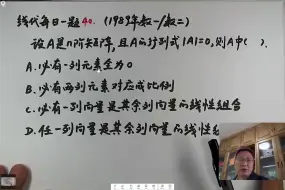 线代每日一题40.（1989年数一/数二）
设A是n阶矩阵，且A的行列式|A|=0，则A中（ ）.
A.必有一列元素全为0
B.必有两列元素对应成比例
C.必有一列向量是其余列向量的线性组合
D.任一列向量是其余列向量的线性